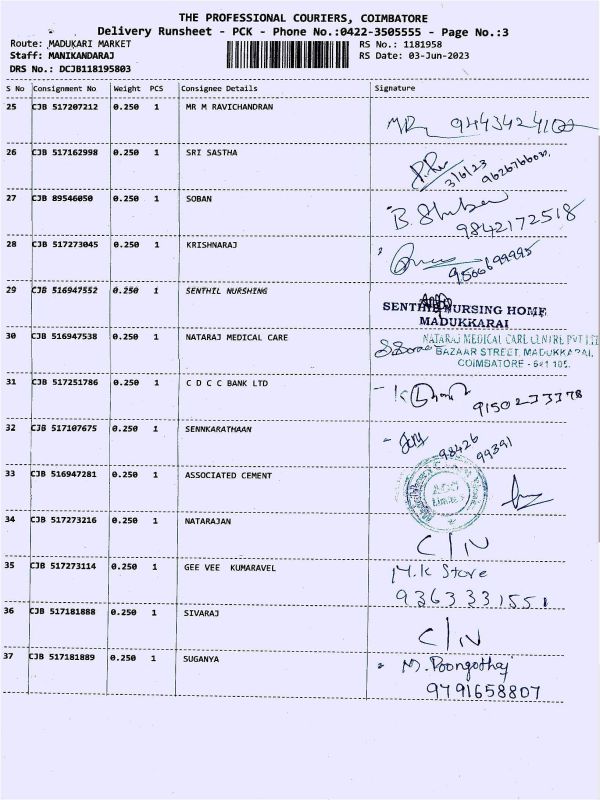 THE PROFESSIONAL COURIERS, COIMBATORE
Delivery Runsheet - PCK - Phone No.:0422-3505555 - Page No.:3
Route: MADUKARI MARKET RS No.: 1181958
Staff: MANIKANDARAJ RS Date: 03-Jun-2023
DRS No.: DCJB118195803
S No Consignment No Weight PCS Consignee Details Signature
25 CJB 517207212 0.250 1 MR M RAVICHANDRAN
26 CJB 517162998 0.250 1 SRI SASTHA
3/6/23
27 CJB 89546050 0.250 1 SOBAN
9842172518
28 CJB 517273045 0.250 1 KRISHNARAJ
29 CJB 516947552 0.250 1 SENTHIL NURSHING
SENTHIL NURSING HOME
MADUKKARAI
30 CJB 516947538 0.250 1 NATARAJ MEDICAL CARE
NATARAJ MEDICAL CARE CENTRE PVT LTD
BAZAAR STREET, MADUKKARAI,
COIMBATORE - 641 105.
31 CJB 517251786 0.250 1 C D C C BANK LTD
9150233778
32 CJB 517107675 0.250 1 SENNKARATHAAN
98426
99391
33 CJB 516947281 0.250 1 ASSOCIATED CEMENT
ACC
Limited
34 CJB 517273216 0.250 1 NATARAJAN
C/N
35 CJB 517273114 0.250 1 GEE VEE KUMARAVEL
M.K Store
9363331551
36 CJB 517181888 0.250 1 SIVARAJ
C/N
37 CJB 517181889 0.250 1 SUGANYA
M. Poongothai
9791658807